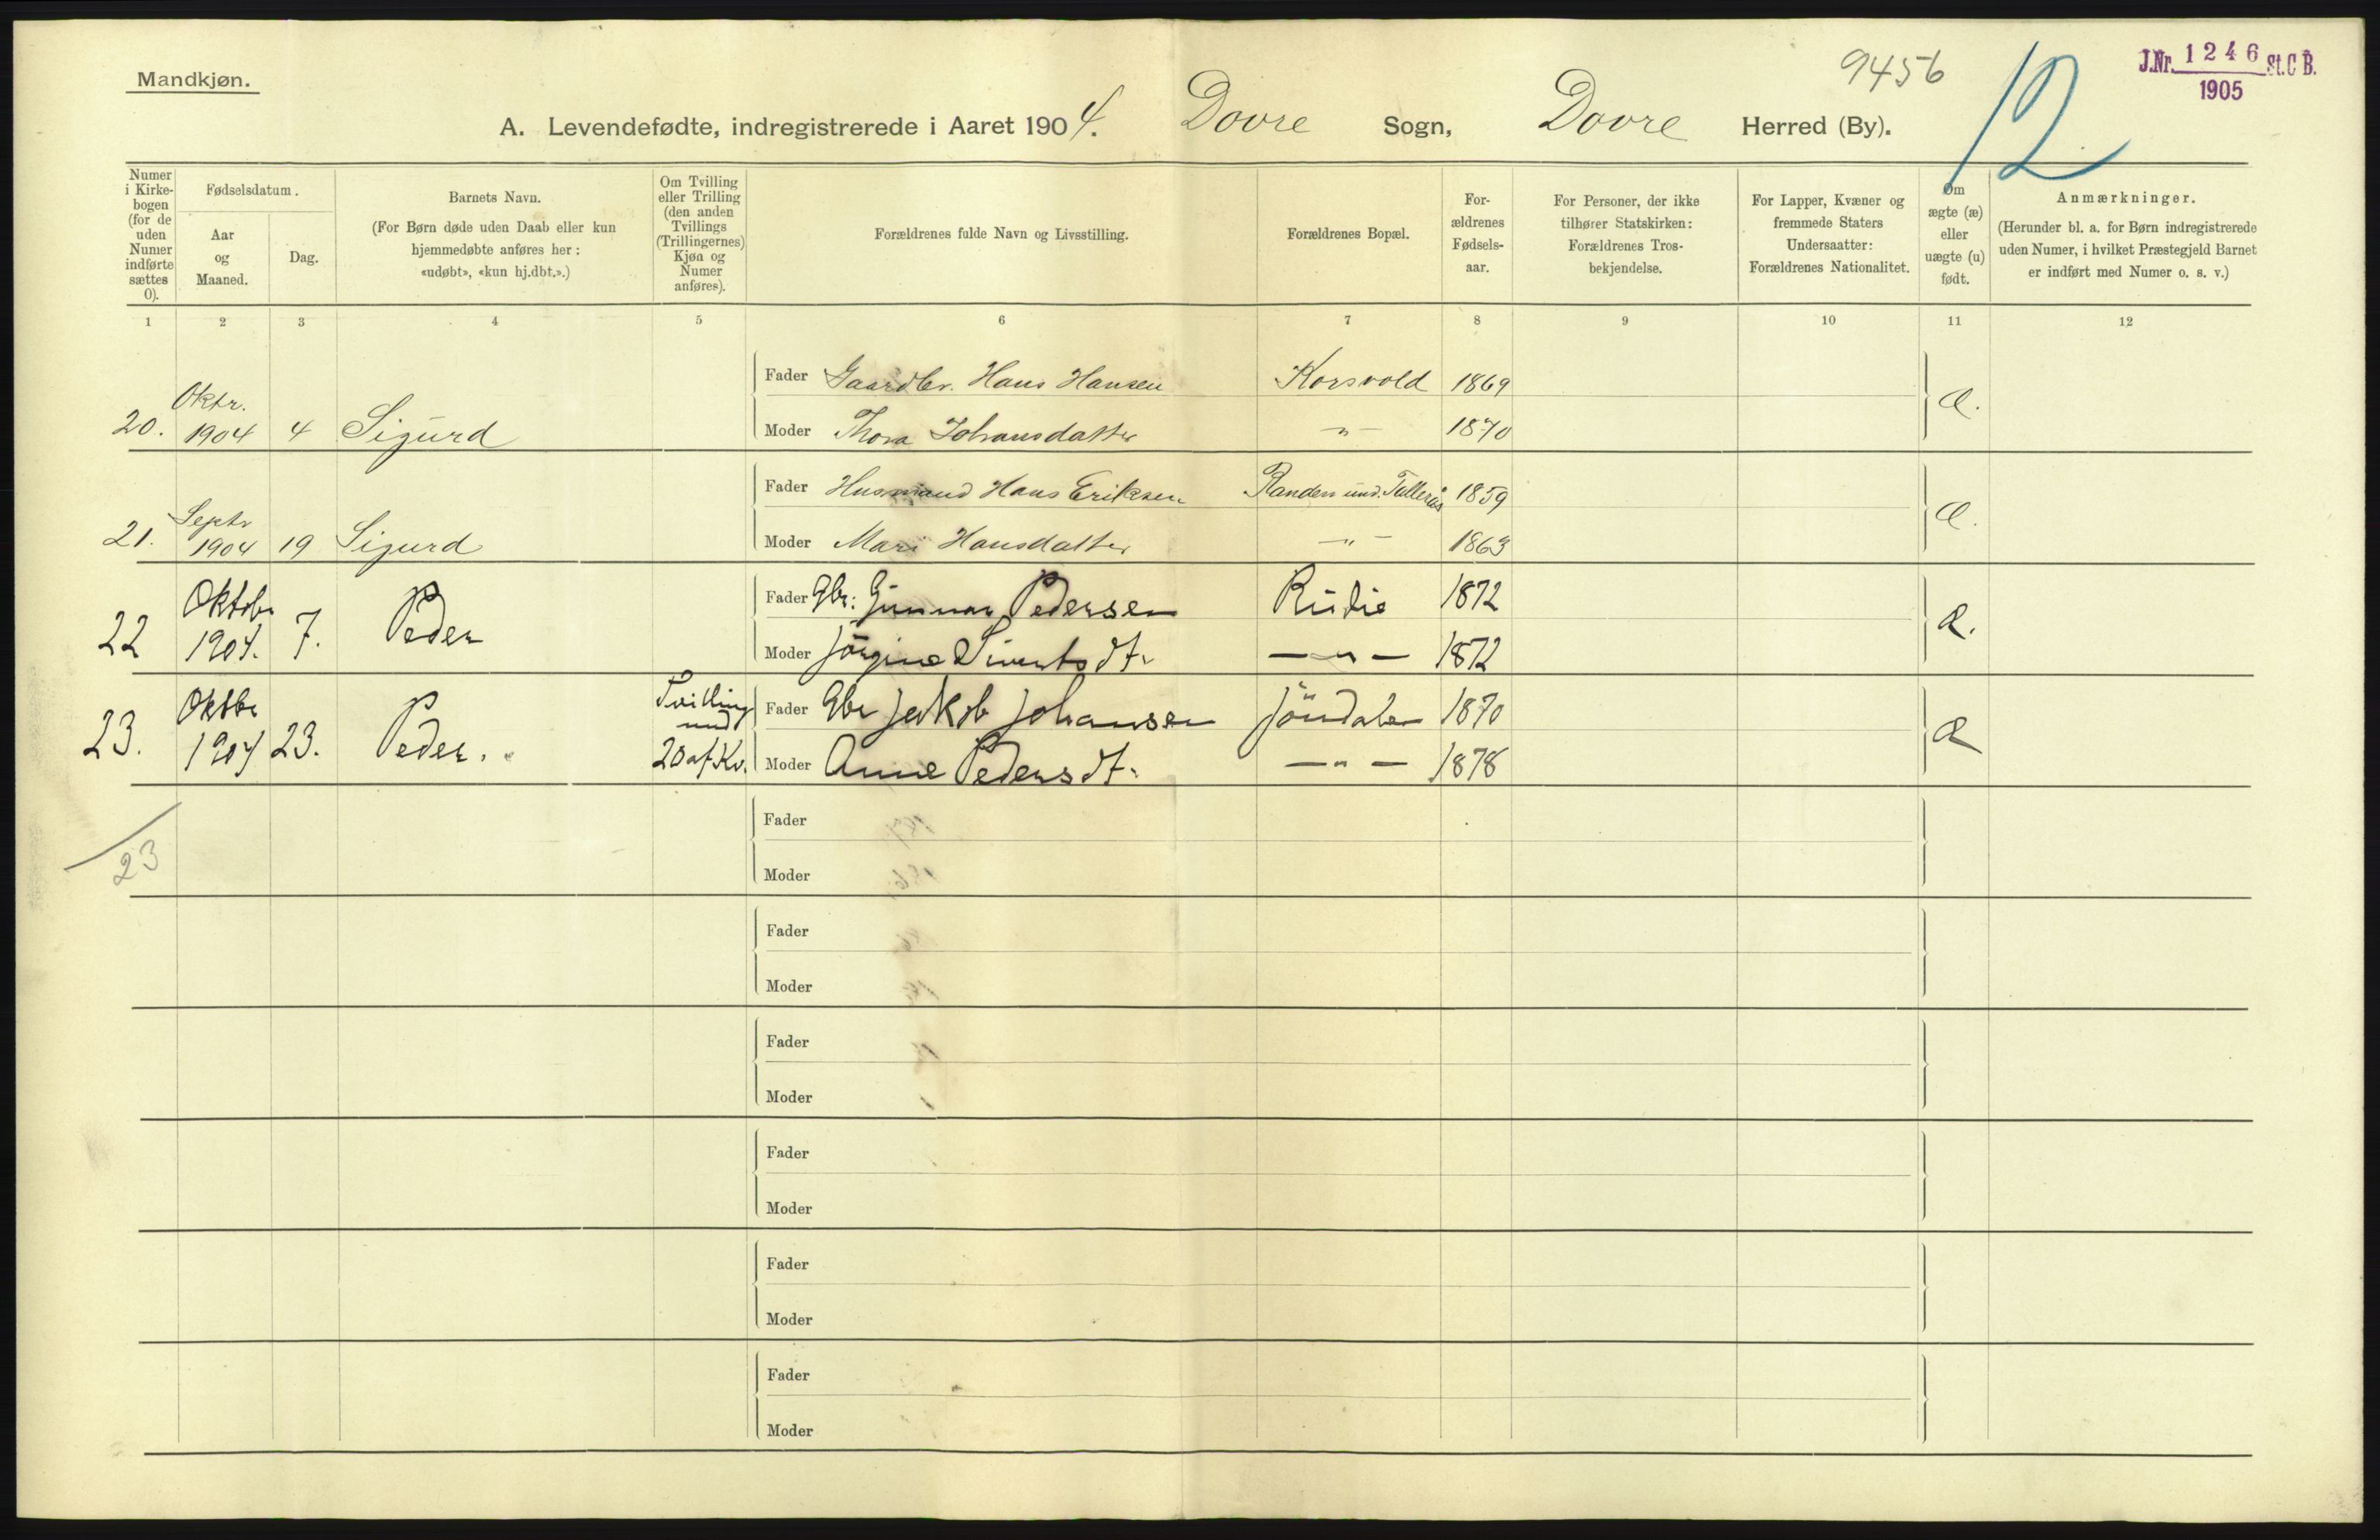 Mandkjøn.
9456
12
J.Nr. 1246 St.C.B.
1905
A. Levendefødte, indregistrerede i Aaret 1904. Dovre Sogn, Dovre Herred (By).
Numer i Kirkebogen (for de uden Numer indførte sættes 0).
Fødselsdatum.
Aar og Maaned.
Dag.
Barnets Navn.
(For Børn døde uden Daab eller kun
hjemmedøbte anføres her:
«udøbt», «kun hj.dbt.».)
Om Tvilling
eller Trilling
(den anden
Tvillings
(Trillingernes)
Kjøn og
Numer
anføres).
Forældrenes fulde Navn og Livsstilling.
Forældrenes Bopæl.
For-
ældrenes
Fødsels-
aar.
For Personer, der ikke
tilhører Statskirken:
Forældrenes Tros-
bekjendelse.
For Lapper, Kvæner og
fremmede Staters
Undersaatter:
Forældrenes Nationalitet.
Om
ægte (æ)
eller
uægte (u)
født.
Anmærkninger.
(Herunder bl. a. for Børn indregistrerede
uden Numer, i hvilket Præstegjeld Barnet
er indført med Numer o. s. v.)
1 2 3 4 5 6 7 8 9 10 11 12
Fader Gaardbr. Hans Hansen Korsvold 1869
Oktr.
20. 1904 4 Sigurd Moder Thora Johansdatter — " — 1870 æ.
Fader Husmand Hans Eriksen Randen und. Tallerås 1859
Septr
21. 1904 19 Sigurd Moder Mari Hansdatter — " — 1863 æ.
Oktobr Fader Gbr: Gunnar Pedersen Rudie 1872
22 1904. 7. Peder Moder Jörgine Sivertsdt. — " — 1872 æ.
Oktbr Tvilling med Fader Gbr Jakob Johansen Jöndalen 1870
23. 1904 23. Peder. 20 af Kv. Moder Anne Pedersdt. — " — 1878 æ
23
Fader
Moder
Fader
Moder
Fader
Moder
Fader
Moder
Fader
Moder
Fader
Moder